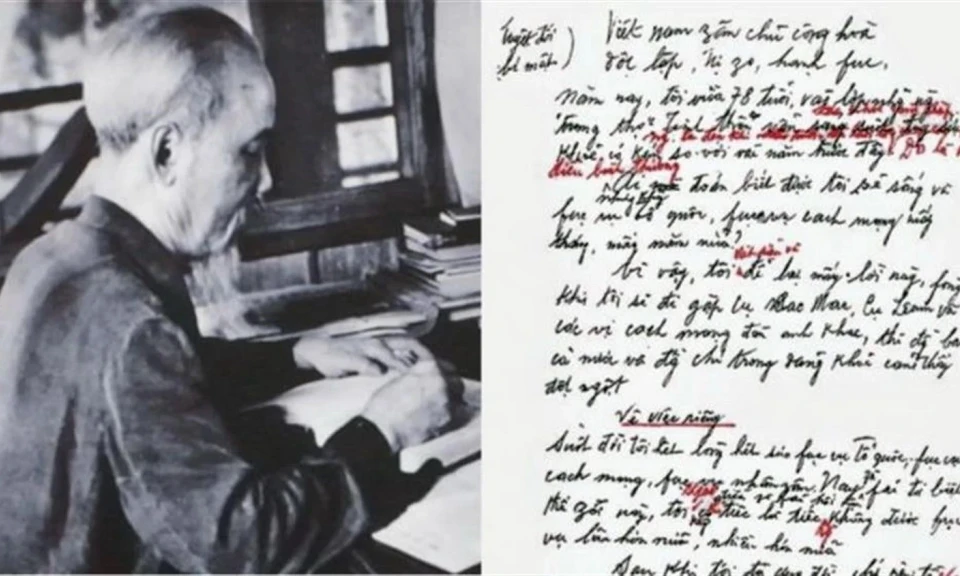 Tuyệt đối
bí mật)
Việt nam zân chủ cộng hoà
độc lập, tự zo, hạnh fúc,
Năm nay, tôi vừa 78 tuổi, vào lớp những
"trung thọ"
khoẻ, có kém so với vài năm trước đây. Đó là
điều bình thường
Ai đoán biết được tôi sẽ sống và
fục vụ tổ quốc, fục vụ cách mạng mấy
tháng, mấy năm nữa?
Vì vậy, tôi để lại mấy lời này, fòng
khi tôi sẽ đi gặp cụ Các Mác, Cụ Lênin và
các vị cách mạng đàn anh khác, thì đồng bào
cả nước và đồng chí trong đảng khỏi cảm thấy
đột ngột
Về việc riêng
Suốt đời tôi hết lòng hết sức fục vụ tổ quốc, fục vụ
cách mạng, fục vụ nhân zân. Nay fải từ biệt
thế giới này, tôi tiếc là tiếc không được fục
vụ lâu hơn nữa, nhiều hơn nữa
Sau khi tôi